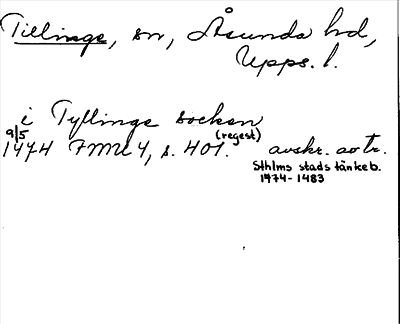 Tillinge, sn, Åsunda hd,
Upps. l.
i Tyllinge socken
9/5 (regest)
1474 FMU 4, s. 401. avskr. av tr.
Sthlms stads tänkeb.
1474-1483